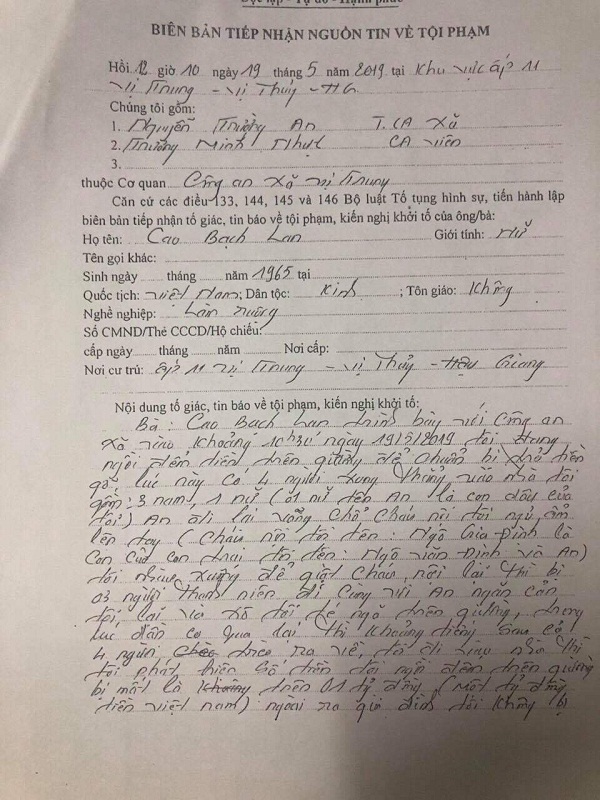 Độc lập - Tự do - Hạnh phúc
BIÊN BẢN TIẾP NHẬN NGUỒN TIN VỀ TỘI PHẠM
Hồi 12 giờ 10 ngày 19 tháng 5 năm 2019 tại Khu vực ấp 11
Vị Trung - Vị Thủy - HG.
Chúng tôi gồm:
1. Nguyễn Trường An T.CA Xã
2. Trương Minh Nhựt CA viên
3.
thuộc Cơ quan Công an xã Vị Trung
Căn cứ các điều 133, 144, 145 và 146 Bộ luật Tố tụng hình sự, tiến hành lập
biên bản tiếp nhận tố giác, tin báo về tội phạm, kiến nghị khởi tố của ông/bà:
Họ tên: Cao Bạch Lan Giới tính: Nữ
Tên gọi khác:
Sinh ngày tháng năm 1965 tại
Quốc tịch: Việt Nam; Dân tộc: Kinh; Tôn giáo: Không
Nghề nghiệp: Làm ruộng
Số CMND/Thẻ CCCD/Hộ chiếu:
cấp ngày tháng năm Nơi cấp:
Nơi cư trú: Ấp 11 Vị Trung - Vị Thủy - Hậu Giang
Nội dung tố giác, tin báo về tội phạm, kiến nghị khởi tố:
Bà: Cao Bạch Lan trình bày với Công an
xã vào khoảng ngày 19/5/2019 tôi đang
ngồi đếm tiền trên giường để chuẩn bị trả tiền
lúc này có 4 người xông thẳng vào nhà tôi
gồm: 3 nam, 1 nữ (01 nữ tên An là con dâu của
tôi) An đi lại võng chổ cháu nội tôi ngủ, ẩm
lên tay (cháu nội tôi tên: Ngô Gia Đình là
con của con trai tôi tên: Ngô Văn Định và An)
tôi xuống để giật cháu nội lại thì bị
03 người thanh niên đi cùng với An ngăn cản
tôi lại và xô tôi té ngã trên giường, trong
lúc dân cư qua tới thì khoảng sau cả
4 người ra về, tôi đi vào nhà thì
tôi phát hiện số tiền tôi ngồi đếm trên giường
bị mất là trên 01 tỷ đồng (Một tỷ đồng
tiền việt nam) ngoài ra gia đình tôi không bị